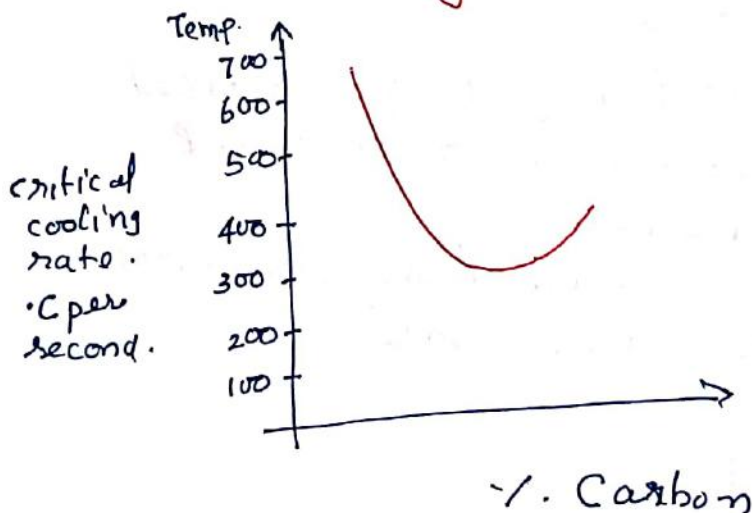 Temp.
700
600
500
400
300
200
100
critical
cooling
rate.
°C per
second.
%. Carbon